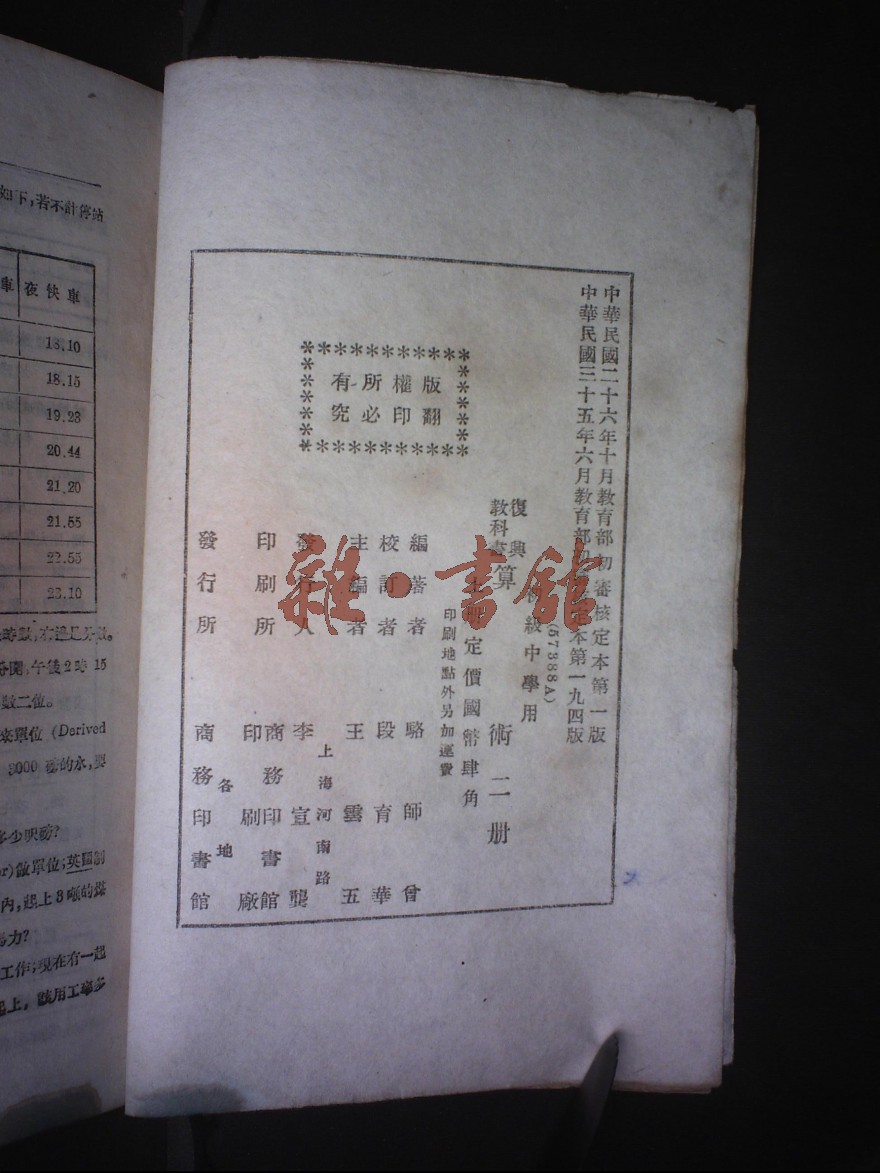 中華民國二十六年十月教育部初審核定本第一版
中華民國三十五年六月教育部初審核定本第一九四版
(57388A)
初級中學用
復興
教科書
算術二册
上册定價國幣肆角
印刷地點外另加運費
版權所有
翻印必究
編著者 駱師曾
校訂者 段育華
主編者 王雲五
上海河南路
發行人 李宣龔
印刷所 商務印書館
印刷廠
各地
發行所 商務印書館
雜·書館
如下,若不計停站
車 夜快車
18.10
18.15
19.28
20.44
21.20
21.55
22.55
23.10
午後2時 15
數二位。
來單位 (Derived
8000 磅的水,要
多少呎磅?
做單位;英國制
內,起上8噸的煤
馬力?
工作;現在有一起
起上,該用工率多